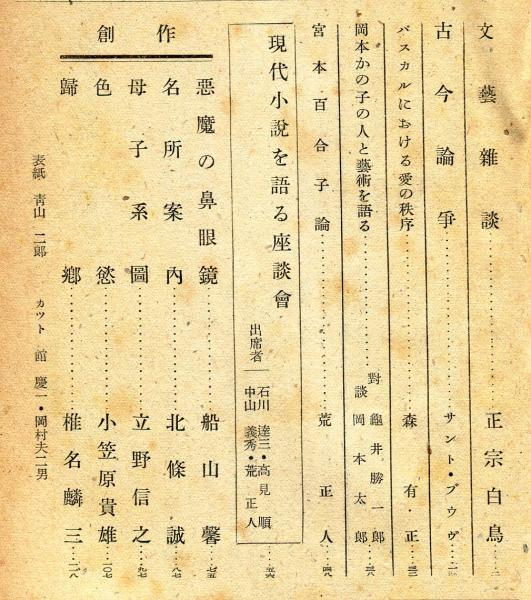 文藝雜談……正宗白鳥
古今論爭……サント・ブウヴ
パスカルにおける愛の秩序……森有正
岡本かの子の人と藝術を語る……對談 龜井勝一郎 岡本太郎
宮本百合子論……荒正人……四八
現代小說を語る座談會
出席者 石川達三・高見順
中山義秀・荒正人……五六
創作
惡魔の鼻眼鏡……船山馨……七五
名所案內……北條誠……八七
母子系圖……立野信之……九七
色慾……小笠原貴雄……一〇七
歸鄕……椎名麟三……二八
表紙 靑山二郎 カツト 館慶一・岡村夫二男